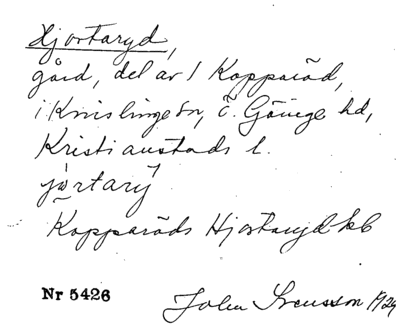 Hjortaryd,
gård, del av 1 Kopparöd,
i Knislinge sn, Ö. Göinge hd,
Kristianstads l.
Kopparöds Hjortaryd kb
Nr 5426
John Svensson 19/29